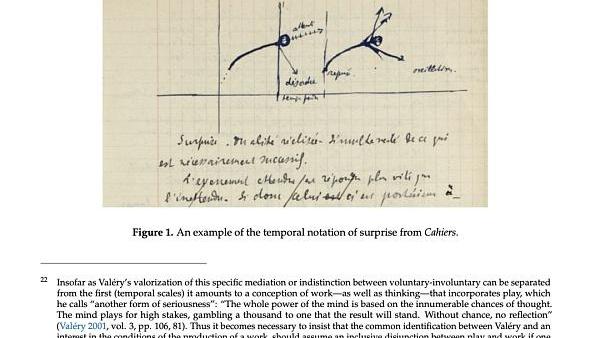 désordre
repris
oscillation.
temps
Surprise. Dualité réalisée. Simultanéité de ce qui
est nécessairement successif.
L'événement attendu plus vite que
l'inattendu. Si donc
Figure 1. An example of the temporal notation of surprise from Cahiers.
22 Insofar as Valéry's valorization of this specific mediation or indistinction between voluntary-involuntary can be separated
from the first (temporal scales) it amounts to a conception of work—as well as thinking—that incorporates play, which
he calls "another form of seriousness": "The whole power of the mind is based on the innumerable chances of thought.
The mind plays for high stakes, gambling a thousand to one that the result will stand. Without chance, no reflection"
(Valéry 2001, vol. 3, pp. 106, 81). Thus it becomes necessary to insist that the common identification between Valéry and an
interest in the conditions of the production of a work, should assume an inclusive disjunction between play and work if one